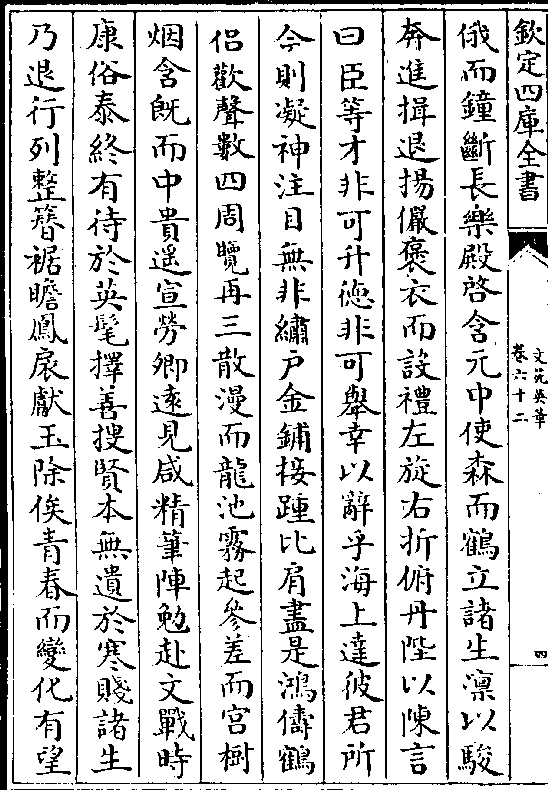 欽定四庫全書
文苑英華
卷六十二
四
俄而鐘斷長樂殿啓含元中使森而鶴立諸生凛以駿
奔進揖退揚儼褒衣而設禮左旋右折俯丹陛以陳言
曰臣等才非可升徳非可舉幸以辭乎海上達彼君所
今則凝神注目無非繡户金鋪接踵比肩盡是鴻儔鶴
侣歡聲數四周覽再三散漫而龍池霧起參差而宫樹
烟含既而中貴遥宣勞卿逺見咸精筆陣勉赴文戰時
康俗泰終有待於英髦擇善搜賢本無遺於寒賤諸生
乃退行列整簪裾瞻鳳扆獻玉除俟青春而變化有望